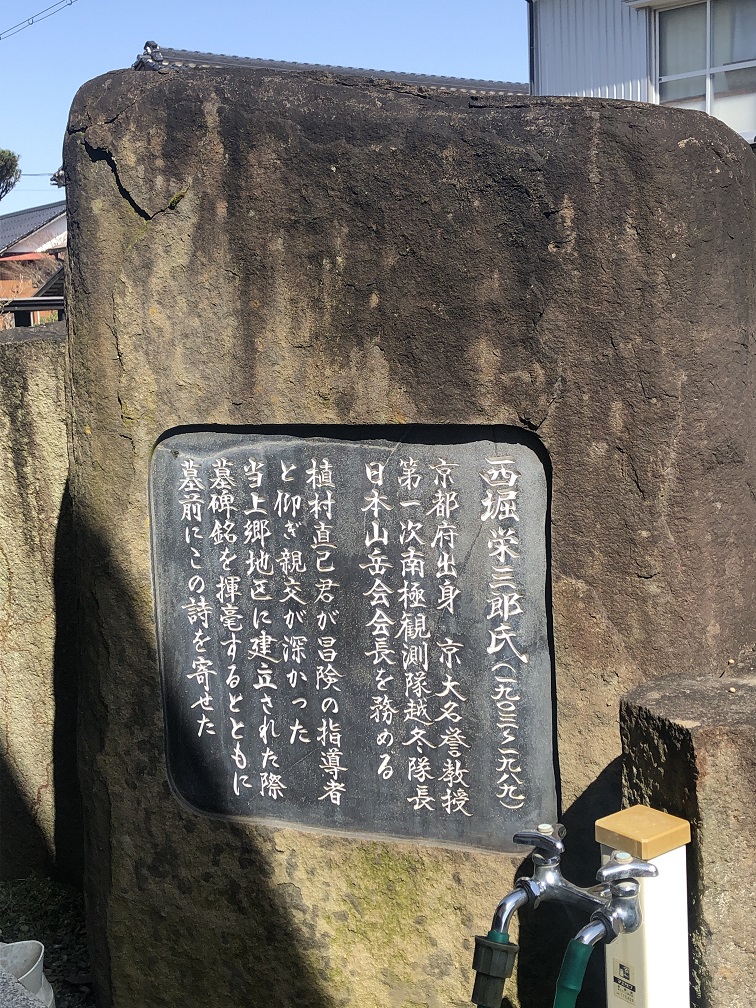 西堀栄三郎氏(一九〇三~一九八九)
京都府出身 京大名誉教授
第一次南極観測隊越冬隊長
日本山岳会会長を務める
植村直己君が冒険の指導者
と仰ぎ親交が深かった
当上郷地区に建立された際
墓碑銘を揮毫するとともに
墓前にこの詩を寄せた